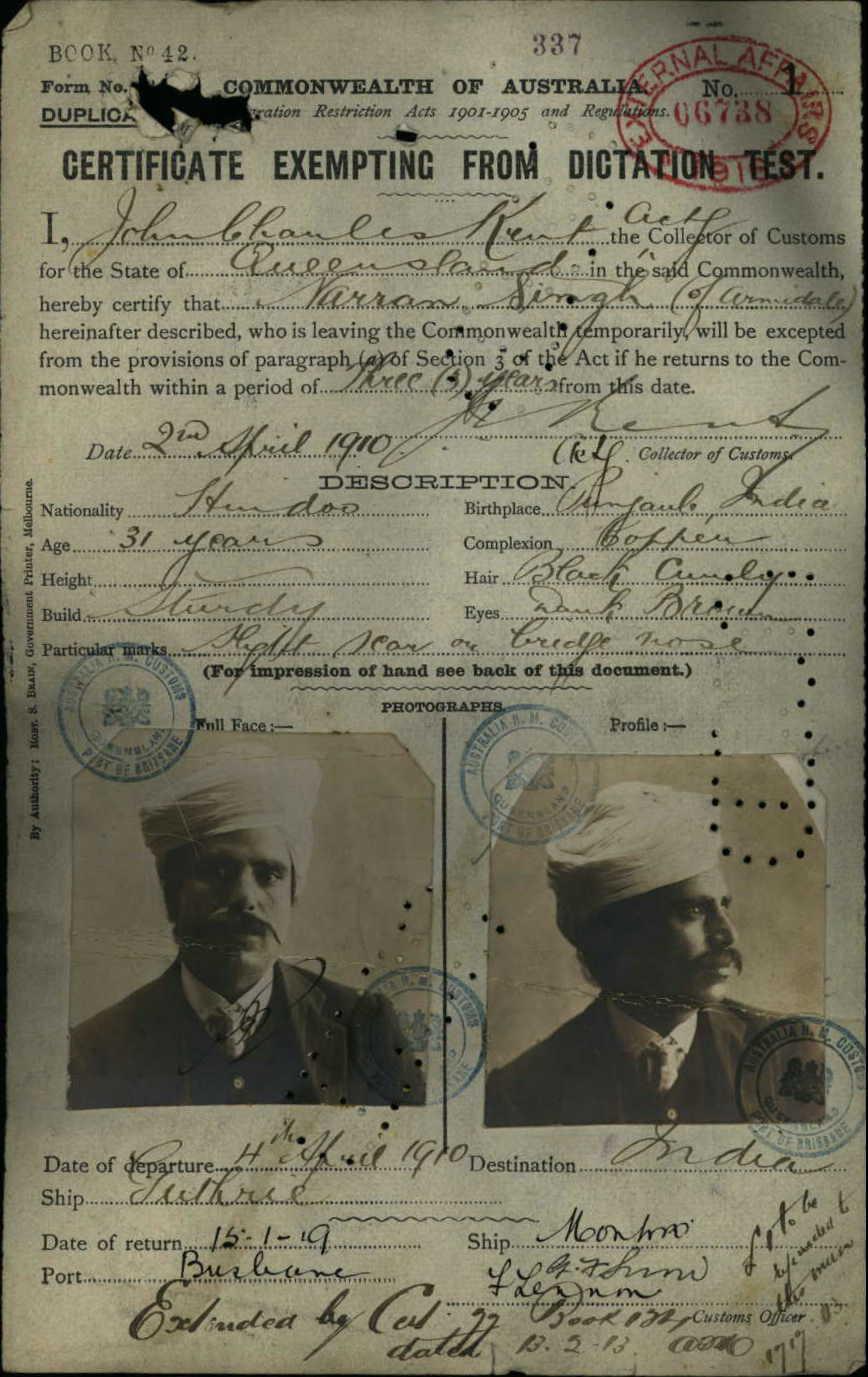 BOOK, Nº 42.
337
Form No.
COMMONWEALTH OF AUSTRALIA.
No. 1
DUPLICA
ration Restriction Acts 1901-1905 and Regulations.
EXTERNAL AFFAIRS
06738
CERTIFICATE EXEMPTING FROM DICTATION TEST.
I, John Charles Kent Actg the Collector of Customs
for the State of Queensland in the said Commonwealth,
hereby certify that Narran Singh (of Armidale)
hereinafter described, who is leaving the Commonwealth temporarily, will be excepted
from the provisions of paragraph (a) of Section 3 of the Act if he returns to the Com-
monwealth within a period of three (3) years from this date.
Date 2nd April 1910
Kent
Collector of Customs.
DESCRIPTION.
Nationality Hindoo
Birthplace Punjaub, India
Age 31 years
Complexion Copper
Height
Hair Black Curly
Build Sturdy
Eyes Dark Brown
Particular marks Slight scar on bridge nose
(For impression of hand see back of this document.)
PHOTOGRAPHS.
Full Face :—
Profile :—
AUSTRALIA H. M. CUSTOMS
QUEENSLAND
PORT OF BRISBANE
AUSTRALIA H. M. CU
QUEENSLAND
PORT OF BRISBANE
By Authority: ROBT. S. BRAIN, Government Printer, Melbourne.
H. M. CUSTOMS
BRISBANE
AUSTRALIA H. M. CUSTO
QUEENSLAND
PORT OF BRISBANE
Date of departure 4th April 1910
Destination India
Ship Guthrie
Date of return 15-1-19
Ship
Port Brisbane
Customs Officer
£1 to be
refunded to
this
Extended by Cert. Book
dated 13.2.13